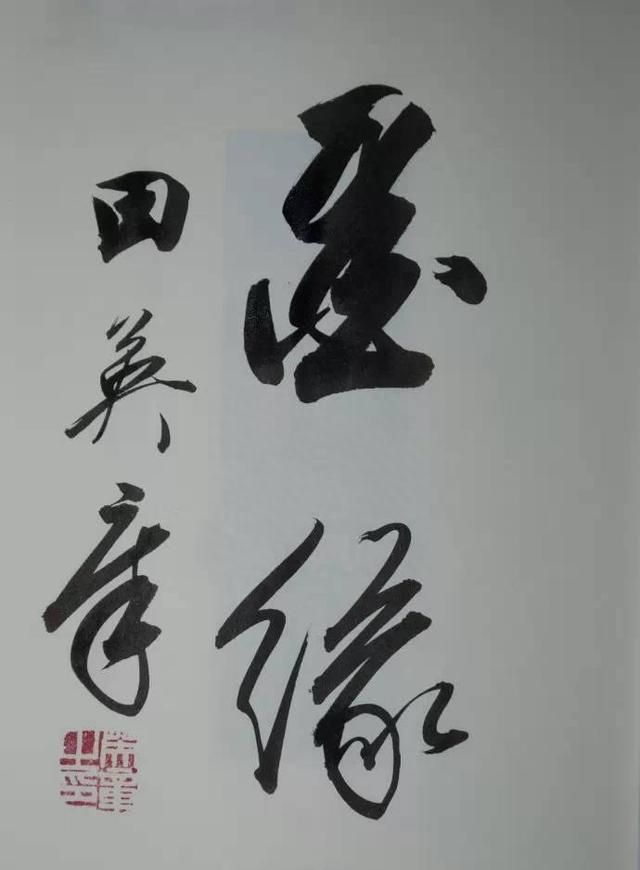 墨缘
田英章